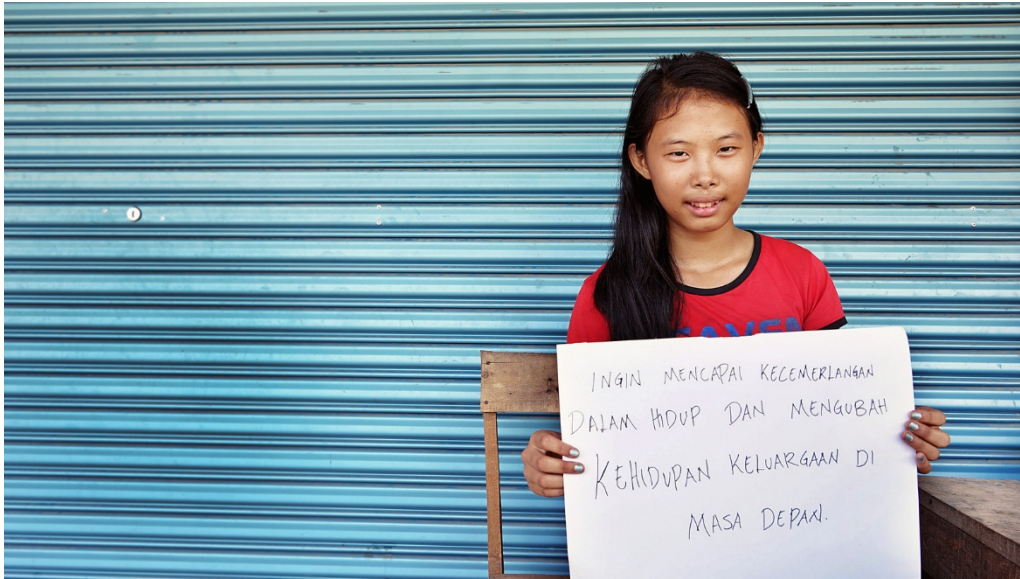 INGIN MENCAPAI KECEMERLANGAN
DALAM HIDUP DAN MENGUBAH
KEHIDUPAN KELUARGAAN DI
MASA DEPAN.